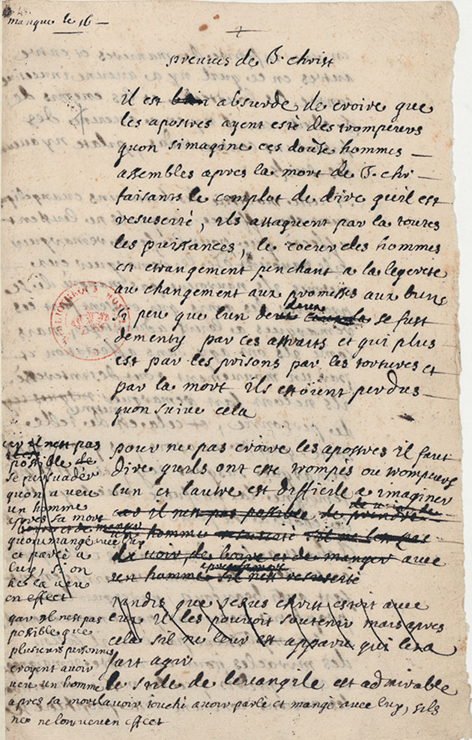 manque le 16
preuves de J. christ
il est bien absurde de croire que
les apostres ayent esté des trompeurs
quon simagine ces douse hommes
assemblés apres la mort de J. chr
faisants le complot de dire quil est
resuscité, ils attaquent par la toutes
les puissances, le coeur des hommes
est etrangement penchant a la legereté
au changement aux promesses aux biens
si peu que lun deux se fust
dementy par ces attraits et qui plus
est par les prisons par les tortures et
par la mort ils estoient perdus
quon suive cela
pour ne pas croire les apostres il faut
dire quils ont esté trompés ou trompeurs
lun et lautre est difficile a imaginer
car il nest pas possible de prendre
un homme
de voir de boire et de manger avec
un homme sil nest resuscité
tandis que Jesus christ estoit avec
eux il les pouvoit soutenir mais apres
cela sil ne leur est apparu qui les a
fait agir
le stile de levangile est admirable
car il nest pas
possible de
se persuader
quon a veu
un homme
apres sa mort
quon mangé avec luy
et parlé a
luy, si on
ne la veu
en effect
car il nest pas
possible que
plusieurs personnes
croyent avoir
veu un homme
apres sa mort lavoir touché avoir parlé et mangé avec luy, sils
ne lont veu en effect